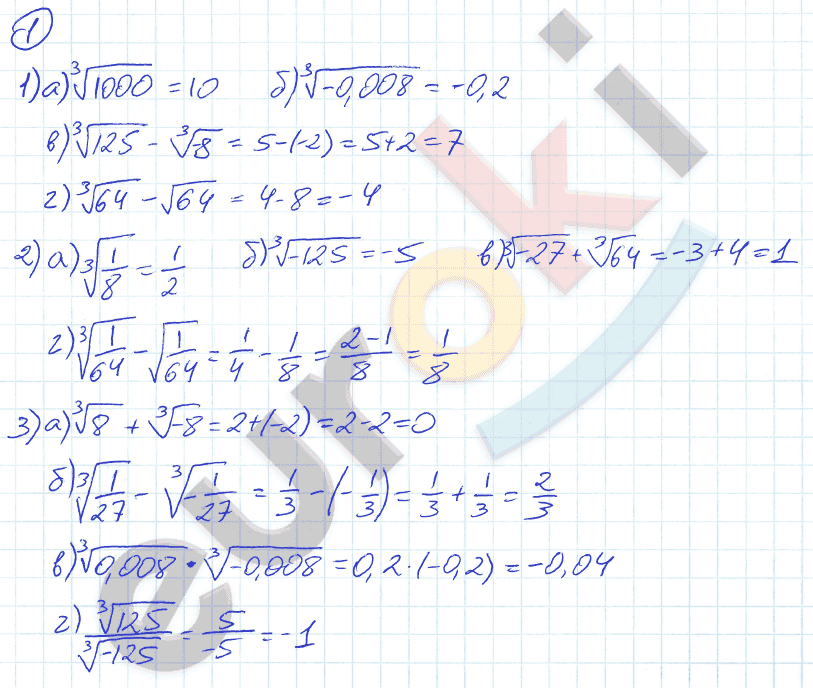 ①
1) а) ∛1000 = 10 б) ∛-0,008 = -0,2
в) ∛125 - ∛-8 = 5-(-2) = 5+2 = 7
г) ∛64 - √64 = 4-8 = -4
2) а) ∛(1/8) = 1/2 б) ∛-125 = -5 в) ∛-27 + ∛64 = -3+4 = 1
г) ∛(1/64) - √(1/64) = 1/4 - 1/8 = (2-1)/8 = 1/8
3) а) ∛8 + ∛-8 = 2+(-2) = 2-2 = 0
б) ∛(1/27) - ∛(-1/27) = 1/3 - (-1/3) = 1/3 + 1/3 = 2/3
в) ∛0,008 · ∛-0,008 = 0,2·(-0,2) = -0,04
г) ∛125/∛-125 = 5/-5 = -1
euroki